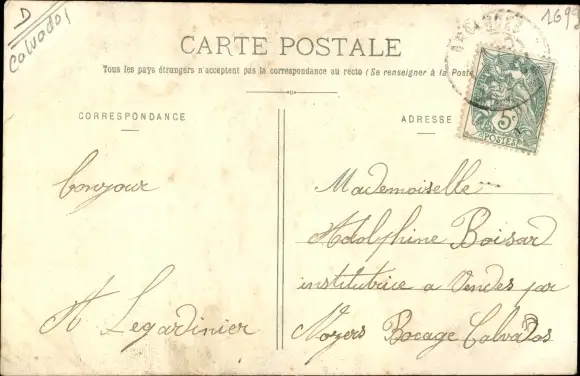 D
Calvados
1699
CARTE POSTALE
Tous les pays étrangers n'acceptent pas la correspondance au recto (Se renseigner à la Poste
CORRESPONDANCE
ADRESSE
5c
POSTES
bonjour
A Legardinier
Mademoiselle
Adolphine Boisard
institutrice a Vendes par
Noyers Bocage Calvados